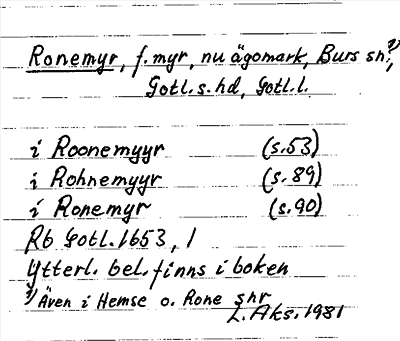 Ronemyr, f.myr, nu ägomark, Burs sn.¹⁾,
Gotl.s.hd, Gotl.l.
i Roonemyyr (s.53)
i Rohnemyyr (s.89)
i Ronemyr (s.90)
Rb Gotl.1653, 1
Ytterl. bel. finns i boken
¹⁾ Även i Hemse o. Rone snr
L.Aks.1981